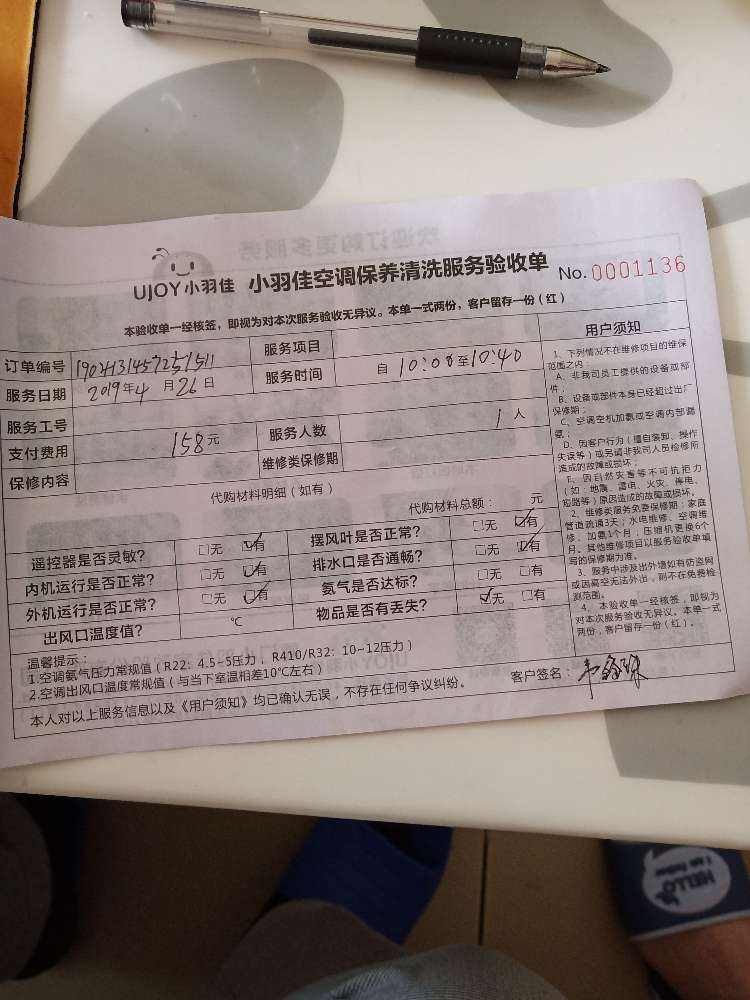 UJOY小羽佳 小羽佳空调保养清洗服务验收单 No.0001136
本验收单一经核签，即视为对本次服务验收无异议。本单一式两份，客户留存一份（红）
订单编号 服务项目
服务日期 2019年4月26日 服务时间 自10:08至10:40
服务工号
支付费用 158元 服务人数 1人
保修内容 维修类保修期
代购材料明细（如有） 代购材料总额： 元
遥控器是否灵敏？ □无 ☑有 摆风叶是否正常？ □无 ☑有
内机运行是否正常？ □无 ☑有 排水口是否通畅？ □无 ☑有
外机运行是否正常？ □无 ☑有 氨气是否达标？ □无 □有
出风口温度值？ ℃ 物品是否有丢失？ ☑无 □有
温馨提示：
1.空调氨气压力常规值（R22：4.5~5压力， R410/R32：10~12压力）
2.空调出风口温度常规值（与当下室温相差10℃左右）
本人对以上服务信息以及《用户须知》均已确认无误，不存在任何争议纠纷。 客户签名：
用户须知
1、下列情况不在维修项目的维保
范围之内：
A、非我司员工提供的设备或部
件；
B、设备或部件本身已经超过出厂
保修期；
C、空调空机加氨或空调内部漏
氨；
D、因客户行为（擅自装卸、操作
失误等）或另请非我司人员检修所
造成的故障或损坏；
E、因自然灾害等不可抗拒力
（如：地震、雷电、火灾、停电、
短路等）原因造成的故障或损坏。
2、维修类服务免费保修期：家庭
管道疏通3天；水电维修、空调维
修、加氨1个月；压缩机更换6个
月。其他维修项目以服务验收单填
写的保修期为准。
3、服务中涉及出外墙如有防盗网
或因高空无法外出，则不在免费检
测范围。
4、本验收单一经核签，即视为
对本次服务验收无异议。本单一式
两份，客户留存一份（红）。
欢迎订购更多服务
HELLO